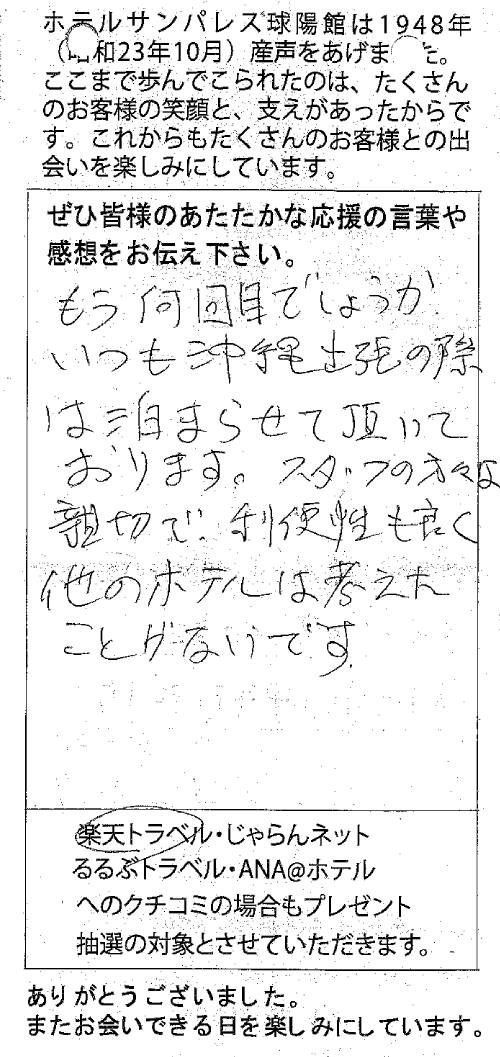 ホテルサンパレス球陽館は1948年
（昭和23年10月）産声をあげました。
ここまで歩んでこられたのは、たくさん
のお客様の笑顔と、支えがあったからで
す。これからもたくさんのお客様との出
会いを楽しみにしています。
ぜひ皆様のあたたかな応援の言葉や
感想をお伝え下さい。
もう何回目でしょうか
いつも沖縄出張の際
は泊まらせて頂いて
おります。スタッフの方々は
親切で、利便性も良く
他のホテルは考えた
ことがないです
楽天トラベル・じゃらんネット
るるぶトラベル・ANA@ホテル
へのクチコミの場合もプレゼント
抽選の対象とさせていただきます。
ありがとうございました。
またお会いできる日を楽しみにしています。